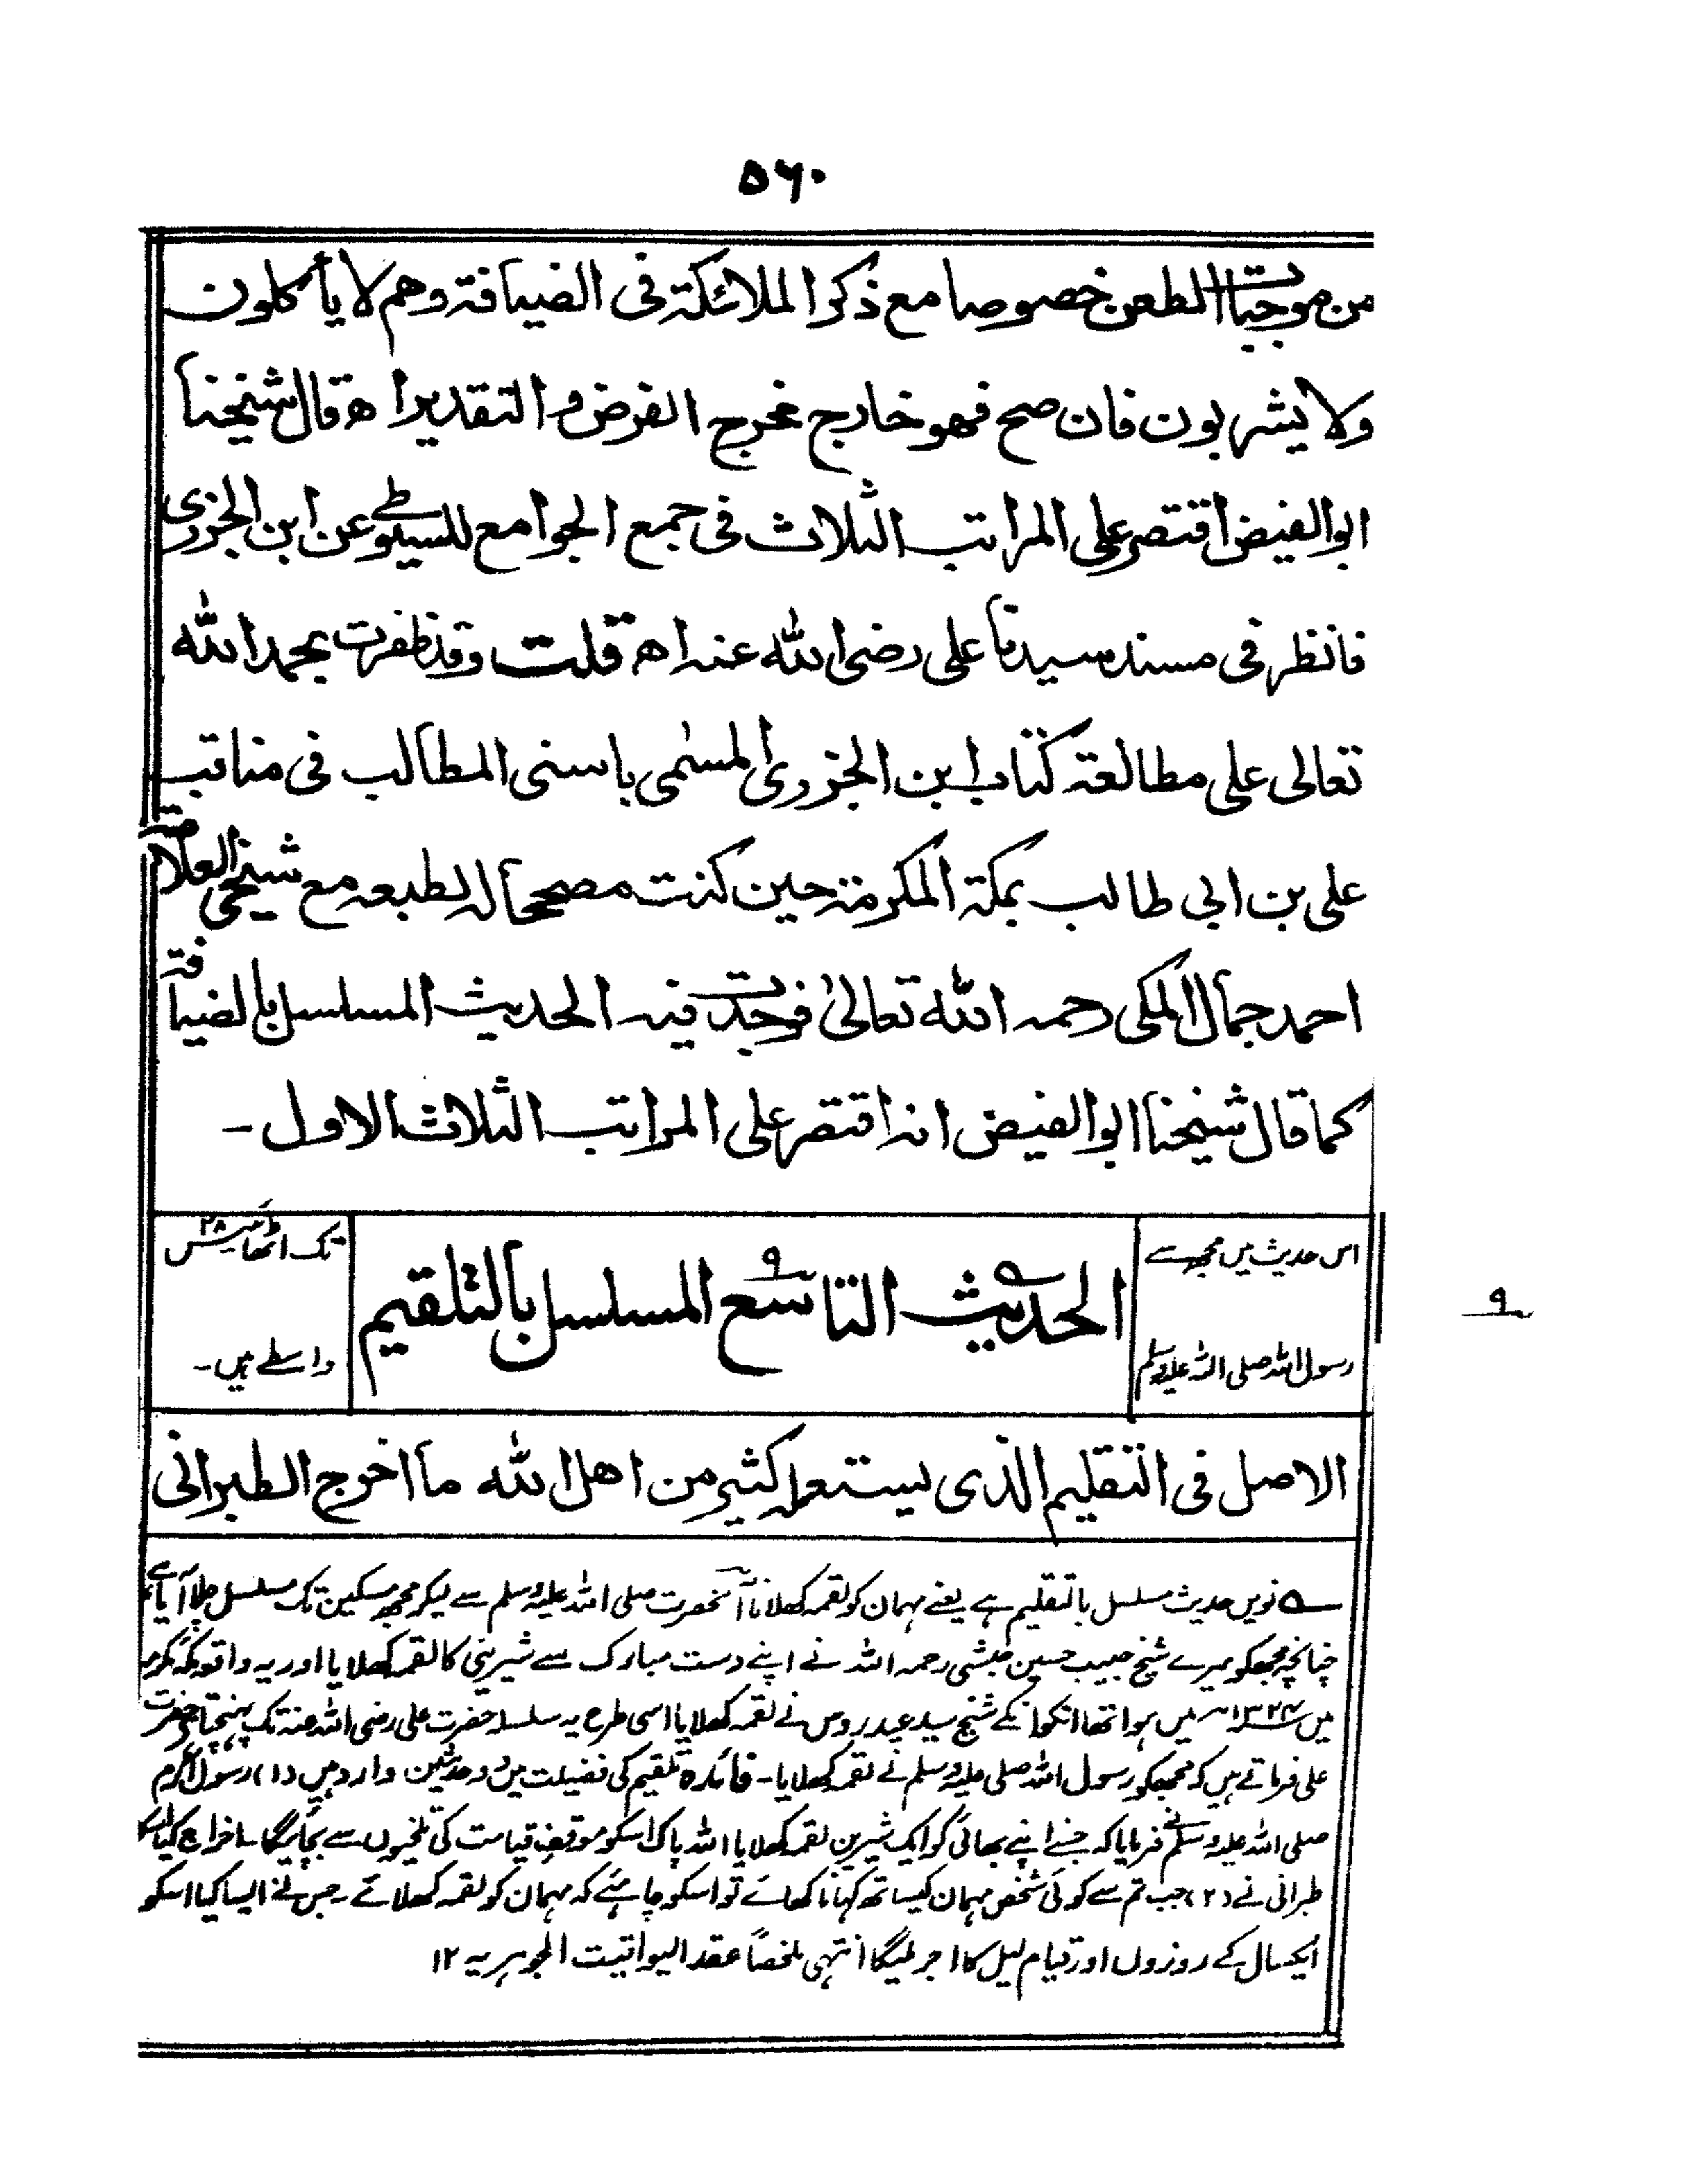 ۵۶۰
من موجبات الطعن خصوصا مع ذكر الملائكة فى الضيافة وهم لا يأكلون
ولا يشربون فان صح فهو خارج مخرج الفرض والتقدير اه قال شيخنا
ابوالفيض اقتصر على المراتب الثلاث فى جمع الجوامع للسيوطى عن ابن الجزرى
فانظر فى مسند سيدنا على رضى الله عنه اه قلت وقد ظفرت بحمد الله
تعالى على مطالعة كتاب ابن الجزرى المسمى باسنى المطالب فى مناقب
على بن ابى طالب بمكة المكرمة حين كنت مصححا له لطبعه مع شيخى العلامة
احمد جمال المكى رحمه الله تعالىٰ فوجدت فيه الحديث المسلسل بالضيافة
كما قال شيخنا ابوالفيض انه اقتصر على المراتب الثلاث الاول -
اس حدیث میں مجھ سے
رسول اللہ صلی اللہ علیہ وسلم
الحديث التاسع ۹ المسلسل بالتلقيم
تک اٹھائیس ۲۸
واسطے ہیں-
۹
الاصل فى التقليم الذى يستعمله كثير من اهل الله ما اخرج الطبرانى
؎ نویں حدیث مسلسل بالتقلیم ہے یعنے مہمان کو لقمہ کھلانا آنحضرت صلی اللہ علیہ وسلم سے لیکر مجھ مسکین تک مسلسل چلا آیا ہے
چنانچہ مجھکو میرے شیخ حبیب حسین حبشی رحمہ اللہ نے اپنے دست مبارک سے شیرینی کا لقمہ کھلایا اور یہ واقعہ مکہ مکرمہ
میں ۱۳۲۴ھ میں ہوا تھا انکو انکے شیخ سید عیدروس نے لقمہ کھلایا اسی طرح یہ سلسلہ حضرت علی رضی اللہ عنہ تک پہنچتا ہے حضرت
علی فرماتے ہیں کہ مجھکو رسول اللہ صلی علیہ وسلم نے لقمہ کھلایا - فائدہ تلقیم کی فضیلت میں دو حدیثیں وارد ہیں (۱) رسول اکرم
صلی اللہ علیہ وسلم نے فرمایا کہ جسنے اپنے بھائی کو ایک شیرین لقمہ کھلایا اللہ پاک اسکو موقف قیامت کی تلخیوں سے بچائیگا اخراج کیا اسکو
طبرانی نے (۲) جب تم سے کوئی شخص مہمان کیساتھ کہانا کھائے تو اسکو چاہئے کہ مہمان کو لقمہ کھلائے جس نے ایسا کیا اسکو
ایکسال کے روزوں اور قیام لیل کا اجر ملیگا انتہی ملخصاً عقد الیواقیت الجوہریہ ۱۲